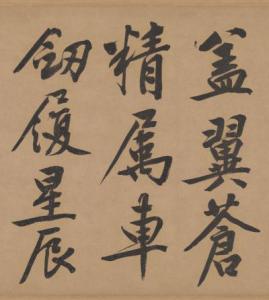 盖翼蒼
精属車
劒履星辰